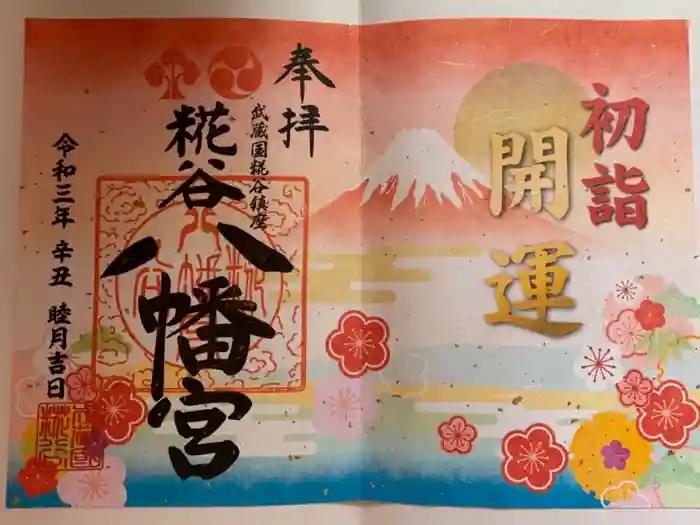 初詣
開運
奉拝
武蔵国糀谷鎮座
糀谷
八幡宮
令和三年 辛丑 睦月吉日